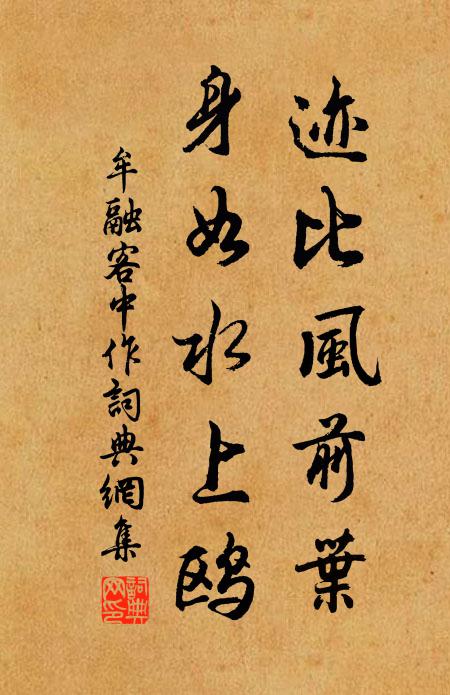 迹比風前葉
身如水上鸥
牟融客中作詞典網集
詞典网印